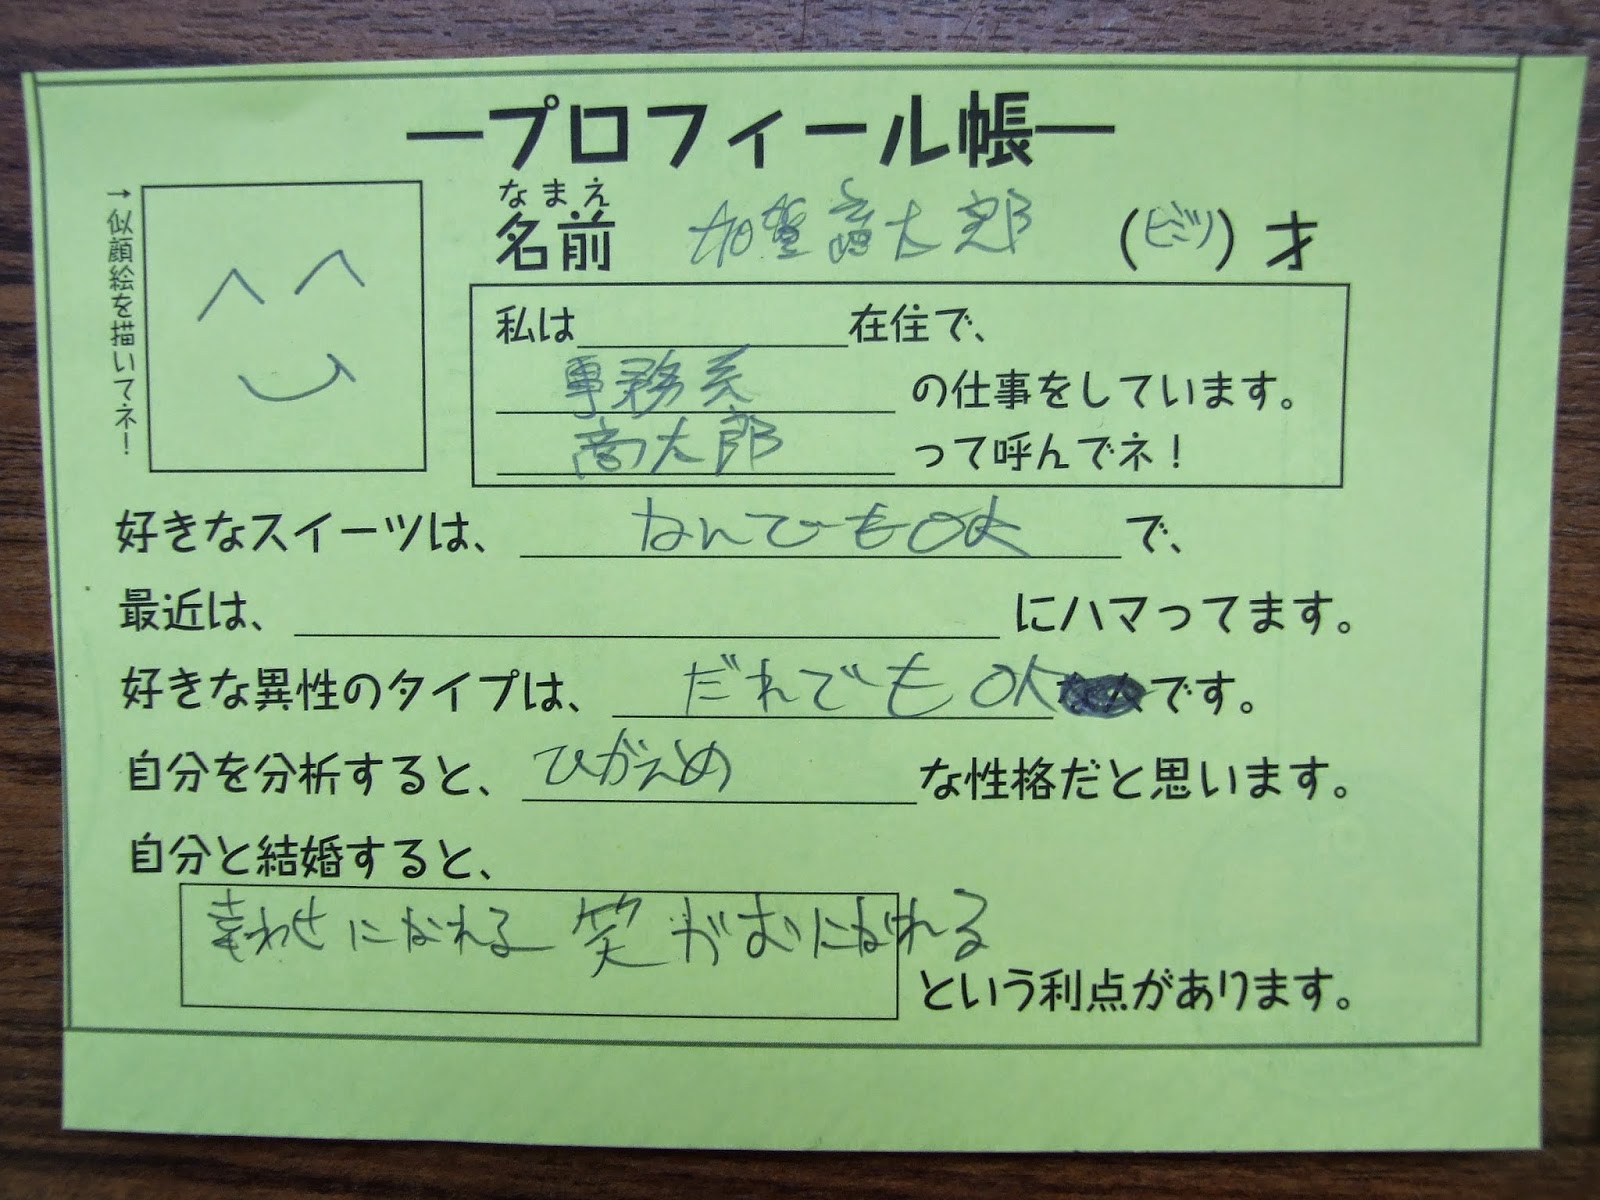 ―プロフィール帳―
→似顔絵を描いてネ！
なまえ
名前 加賀 太郎 （ヒミツ）才
私は 在住で、
事務系 の仕事をしています。
商太郎 って呼んでネ！
好きなスイーツは、 なんでもOK で、
最近は、 にハマってます。
好きな異性のタイプは、 だれでもOK です。
自分を分析すると、 ひかえめ な性格だと思います。
自分と結婚すると、
幸わせになれる 笑がおになれる
という利点があります。